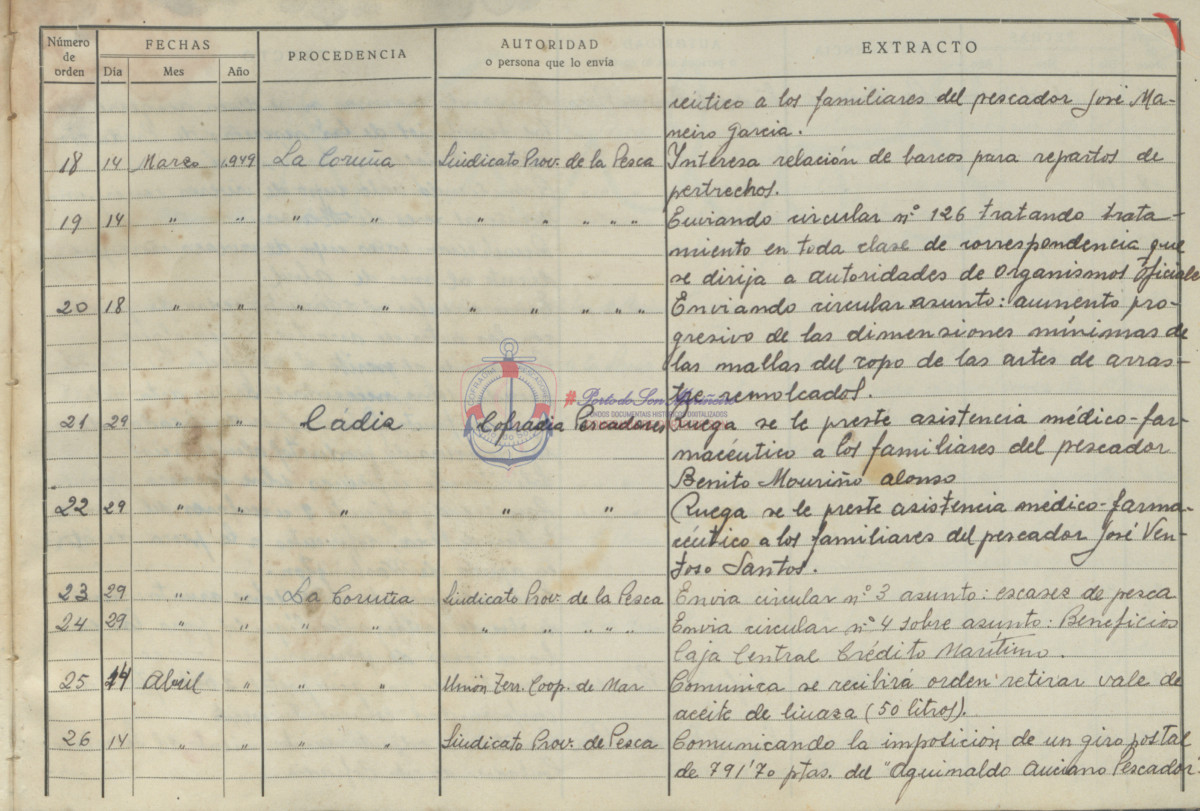 Número de orden FECHAS PROCEDENCIA AUTORIDAD EXTRACTO
Día Mes Año o persona que lo envía
céutico a los familiares del pescador José Ma-
neiro Garcia.
18 14 Marzo 1.949 La Coruña Sindicato Prov. de la Pesca Interesa relación de barcos para repartos de
pertrechos.
19 14 " " " " " " " " " Enviando circular nº 126 tratando trata-
miento en toda clase de correspondencia que
se dirija a autoridades de Organismos Oficiale
20 18 " " " " " " " " " Enviando circular asunto: aumento pro-
gresivo de las dimensiones mínimas de
las mallas del copo de las artes de arras-
tre remolcados.
21 29 " " Cádiz Cofradia Pescadores Ruega se le preste asistencia médico-far-
macéutico a los familiares del pescador
Benito Mouriño Alonso
22 29 " " " " " Ruega se le preste asistencia médico-farma-
céutico a los familiares del pescador José Ven-
toso Santos.
23 29 " " La Coruña Sindicato Prov. de la Pesca Envia circular nº 3 asunto: escases de pesca
24 29 " " " " " " " " " Envia circular nº 4 sobre asunto: Beneficios
Caja Central Crédito Marítimo.
25 14 Abril " " " Unión Terr. Coop. de Mar Comunica se recibirá orden retirar vale de
aceite de linaza (50 litros).
26 14 " " " " Sindicato Prov. de Pesca Comunicando la imposición de un giro postal
de 791'70 ptas. del "Aguinaldo Anciano Pescador".
#Porto do Son Mariñeiro
FONDOS DOCUMENTAIS HISTÓRICOS DIGITALIZADOS